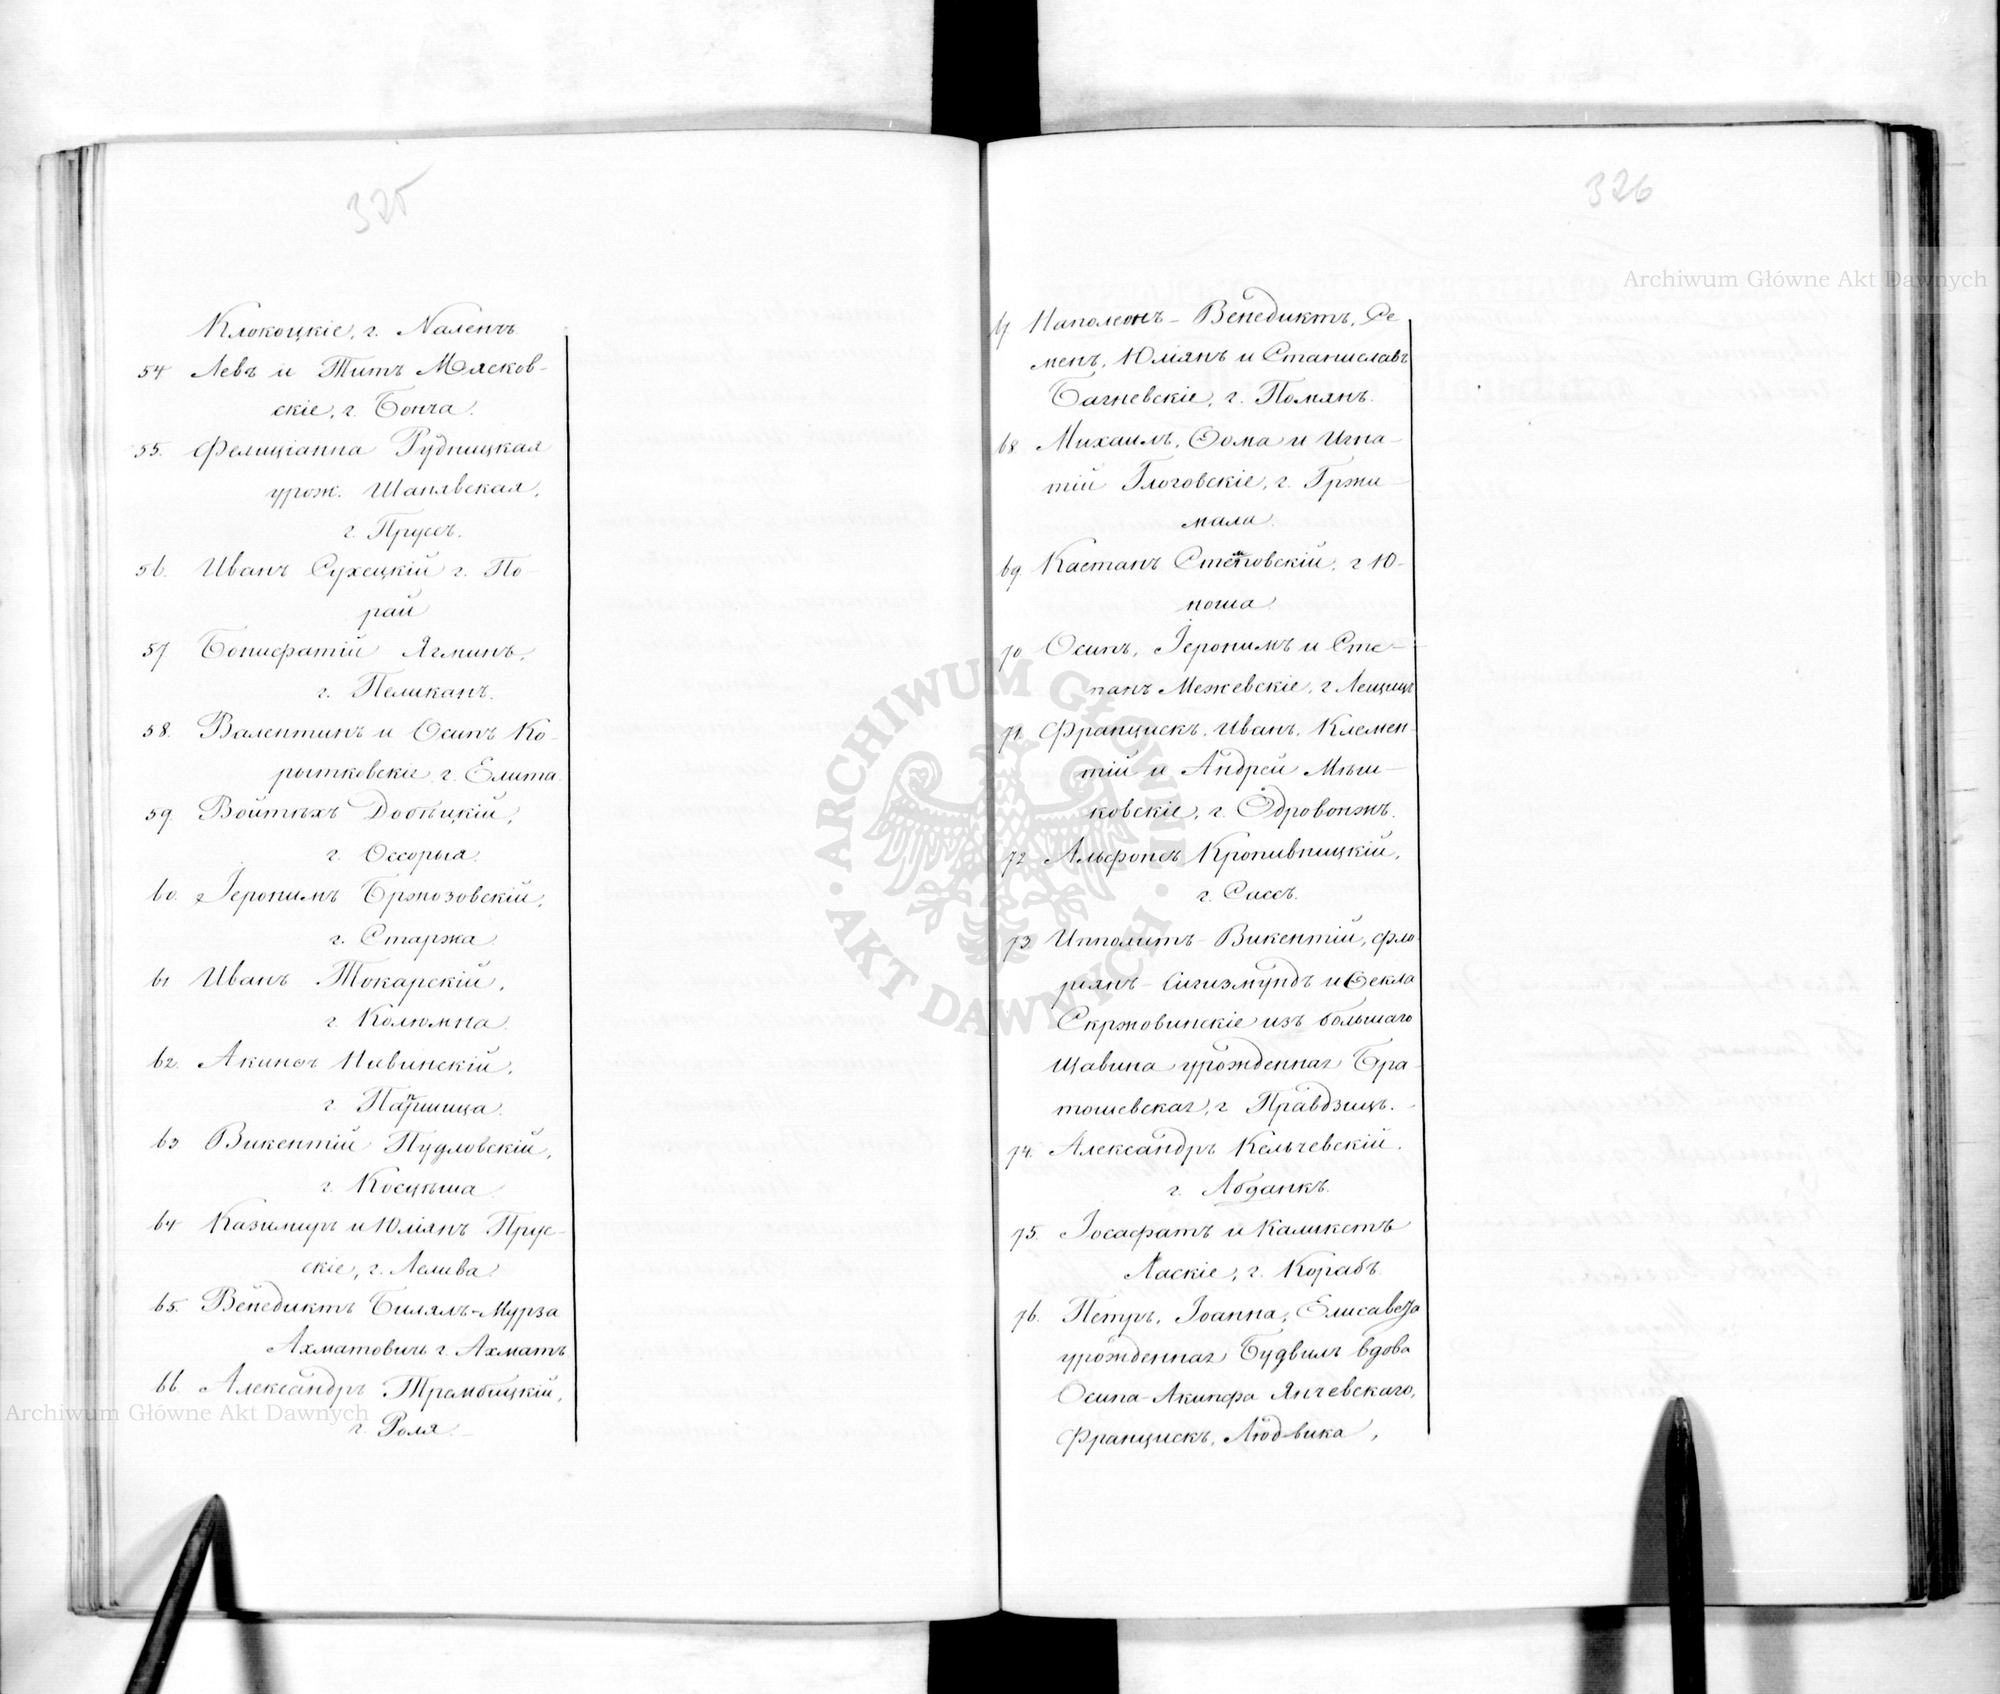 325
Клокоцкіе, г. Наленчъ
54 Левъ и Титъ Мясков-
скіе, г. Бонча.
55. Фелиціанна Рудницкая
урож. Шанявская,
г. Пруссъ.
56. Иванъ Сухецкій г. По-
рай
57 Бонифатій Ягминъ,
г. Пеликанъ.
58. Валентинъ и Осипъ Ко-
рытковскіе г. Елита
59. Войтѣхъ Добѣцкій,
г. Оссорыя.
60. Іеронимъ Бржозовскій,
г. Старжа
61 Иванъ Токарскій,
г. Колюмна.
62. Акинѳъ Нивинскій,
г.
63 Викентій Пудловскій,
г. Косцѣша
64 Казимиръ и Юліянъ Прус-
скіе, г. Лелива.
65. Венедиктъ Билялъ-Мурза
Ахматовичъ г. Ахматъ
66. Александръ Трембицкій,
г. Роля
326
67 Наполеонъ-Венедиктъ, Се-
менъ, Юліянъ и Станиславъ
Багневскіе, г. Помянъ.
68. Михаилъ, Ѳома и Игна-
тій Глоговскіе, г. Гржи-
мала.
69. Каетанъ Стемповскій, г Ю-
ноша
70 Осипъ, Іеронимъ и Сте-
панъ Межевскіе, г Лещицъ
71. Францискъ, Иванъ, Клемен-
тій и Андрей Мѣш-
ковскіе, г. Одровонжъ.
72 Альфонсъ Кропивницкій,
г. Сассъ.
73. Ипполитъ-Викентій, Фло-
ріянъ-Сигизмундъ и Ѳекла
Скржовинскіе изъ большаго
Щавина урожденная Бра-
тошевская, г Правдзицъ.
74. Александръ Кельчевскій,
г. Абданкъ.
75. Іосафатъ и Каликстъ
Ласкіе, г. Корабъ
76. Петръ, Іоанна, Елисавета
урожденная Будвилъ вдова
Осипа-Акинфа Янчевскаго,
Францискъ, Людвика,
Archiwum Główne Akt Dawnych
ARCHIWUM GŁÓWNE AKT DAWNYCH
Archiwum Główne Akt Dawnych